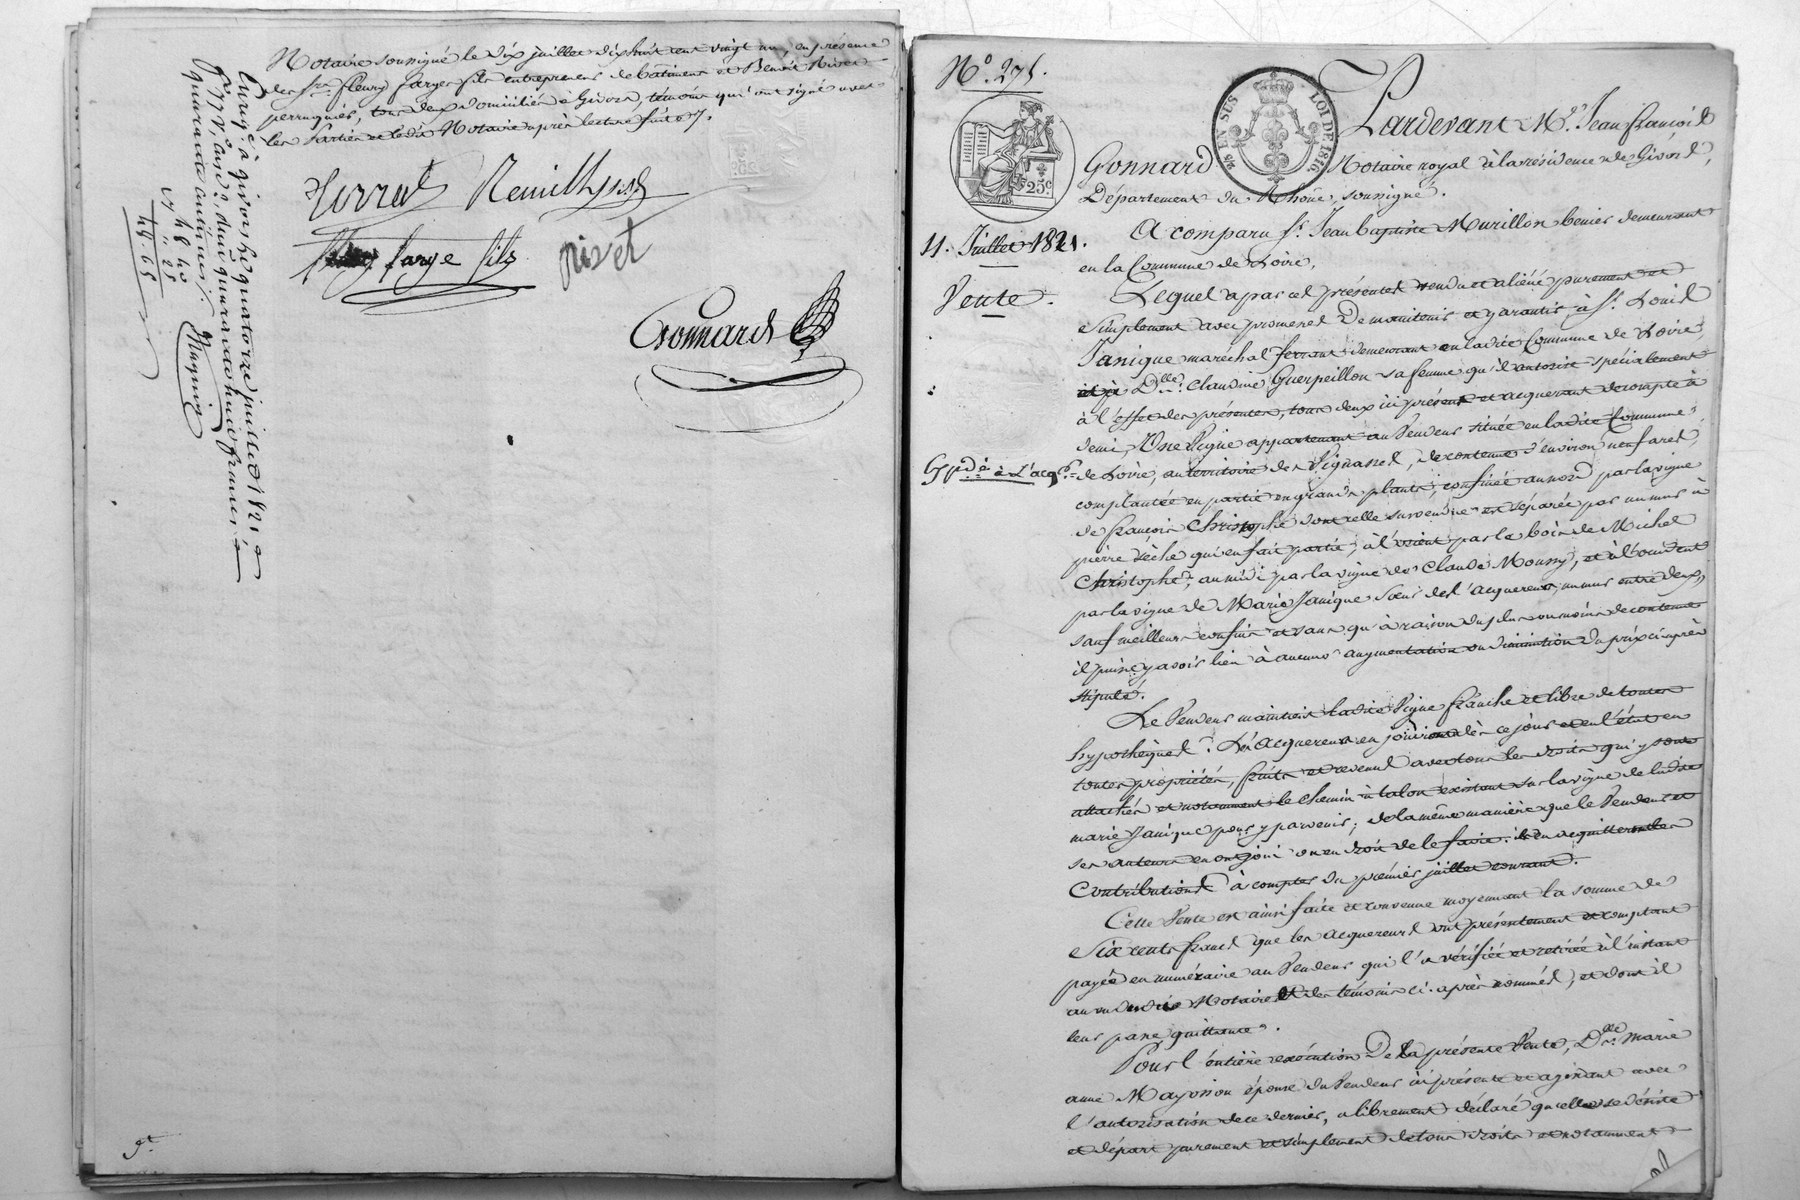 Notaire soussigné le dix juillet dix huit cent vingt un, en présence
des Srs. fleury farge fils entrepreneur de bâtimens et Benoît Rivet
perruquier, tous deux domiciliés à Givors, témoins qui ont signé avec
les parties et ledit Notaire après lecture faite
farge fils
rivet
Gonnard
Enregé. à givors le quatorze juillet 1821,
quarante centimes.
48 40
.. 25
48.65
St.
No. 275.
EN SUS
LOI DE 1816
25c.
Pardevant Me. Jean françois
Gonnard Notaire royal à la résidence de Givors,
Département du Rhône, soussigné.
11. Juillet 1821.
A comparu Sr. Jean Baptiste Murillon demeurant
en la Commune de Loire,
Vente.
Lequel a par ces présentes vendu et aliéné purement et
simplement avec promesse de maintenir et garantir, à Sr. Louis
Janique maréchal ferrant demeurant en ladite Commune de Loire,
et à Dlle. Claudine Guerpillon sa femme qu'il autorise spécialement
à l'effet des présentes, tous deux ici présens et acquerant de compte à
demi, Une Vigne appartenant au Vendeur située en ladite Commune
Expde. à L'acqr.
de Loire, au territoire des Vignasses, de contenue d'environ neuf ares,
complantée en partie en grands plants, confinée au nord par la vigne
de françois Christophe dont elle est séparée par un mur à
pierre sèche qui en fait partie, à l'orient par le bois de Michel
Christophe, au midi par la vigne de Claude Moussy, et à l'occident
par la vigne de Marie Janique soeur de l'acquereur, un mur entre deux,
sauf meilleurs confins et sans qu'à raison du plus ou moins de contenue
il puisse y avoir lieu à aucune augmentation ou diminution du prix ci-après
stipulé.
Le Vendeur maintient ladite Vigne franche et libre de toutes
hypothèques. Les acquereurs en jouiront dès ce jour et en l'état en
toutes propriétés, fruits et revenus avec tous les droits qui y sont
attachés et notamment le chemin à talon existant sur la vigne de ladite
marie Janique pour y parvenir, de la même manière que le Vendeur et
ses auteurs en ont joui ou eu droit de le faire. ils en acquitteront les
Contributions à compter du premier juillet courant.
Cette Vente est ainsi faite et convenue moyennant la somme de
Six cents francs que les acquereurs ont présentement et comptant
payée en numéraire au Vendeur qui l'a vérifiée et retirée à l'instant
au vu dudit Notaire et des témoins ci-après nommés, et dont il
leur passe quittance.
Pour l'entière exécution de la présente Vente, Dlle. Marie
anne Mayosson épouse du Vendeur ici présente et agissant avec
l'autorisation de ce dernier, a librement déclaré qu'elle se désiste
et départ purement et simplement de tous droits et notamment